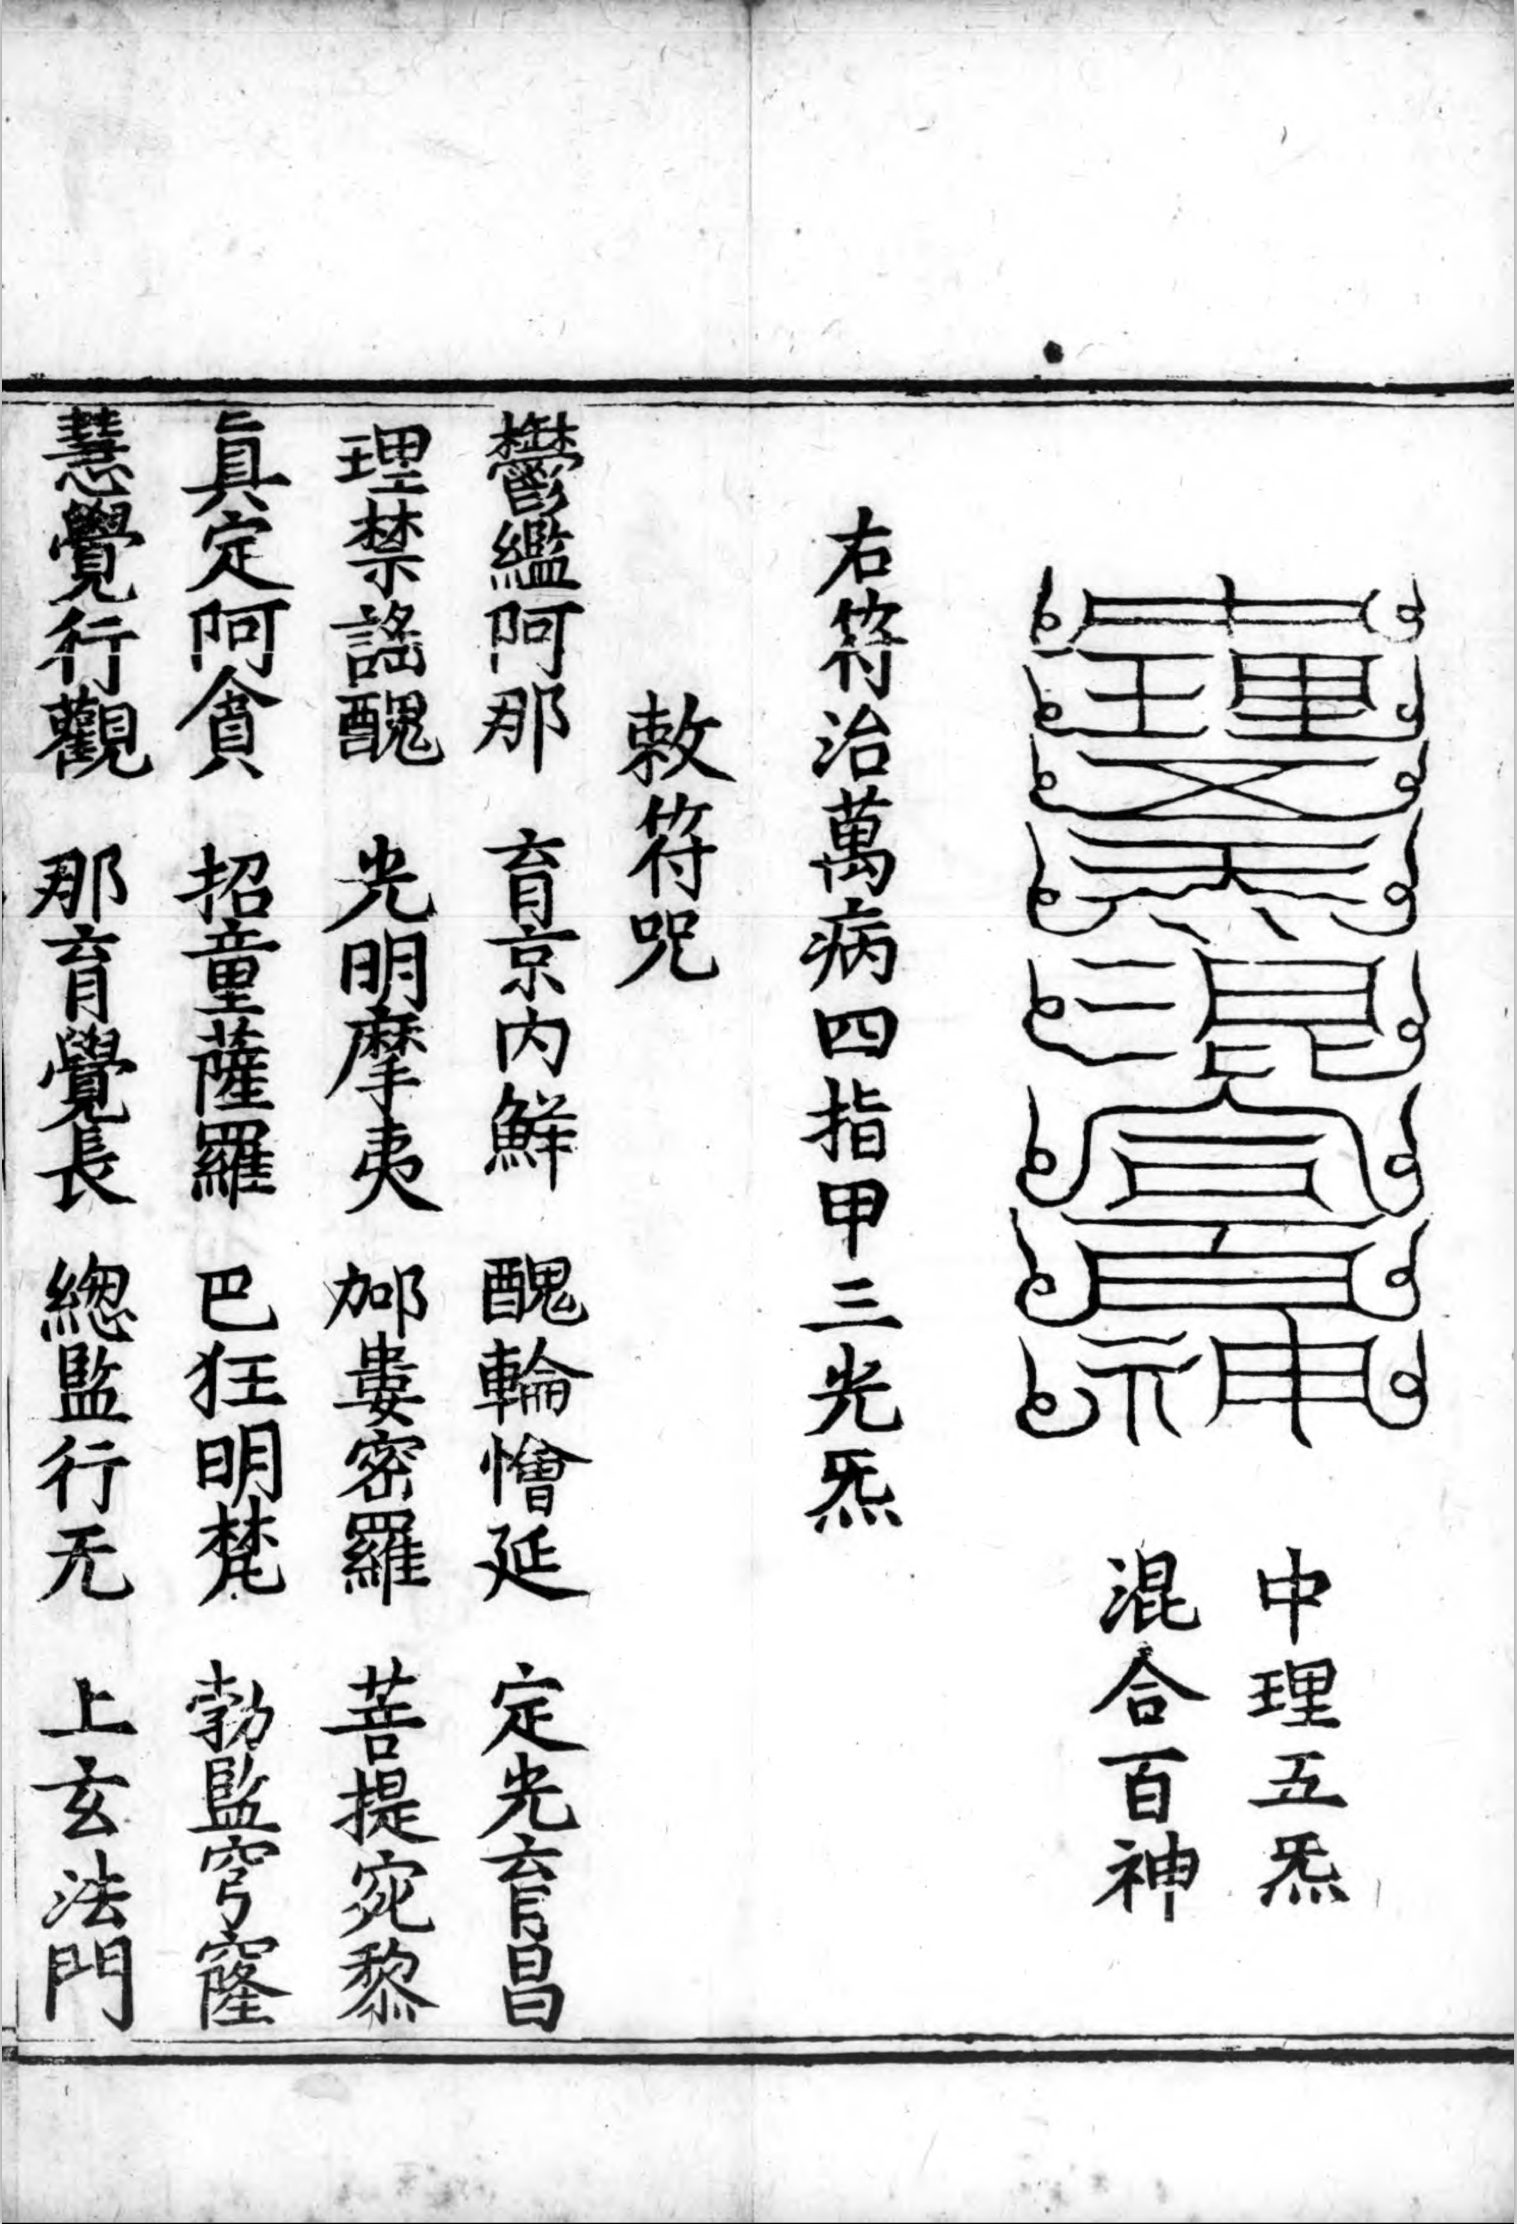 中理五炁
混合百神
右符治萬病四指甲三光炁
敕符咒
鬱繿阿那 育京內鮮 醜輪懀延 定光育昌
理禁謠醜 光明摩夷 邺婁密羅 菩提宛黎
眞定阿貪 招童薩羅 巴狂明梵 勃監穹窿
慧覺行觀 那育覺長 緫監行无 上玄法門